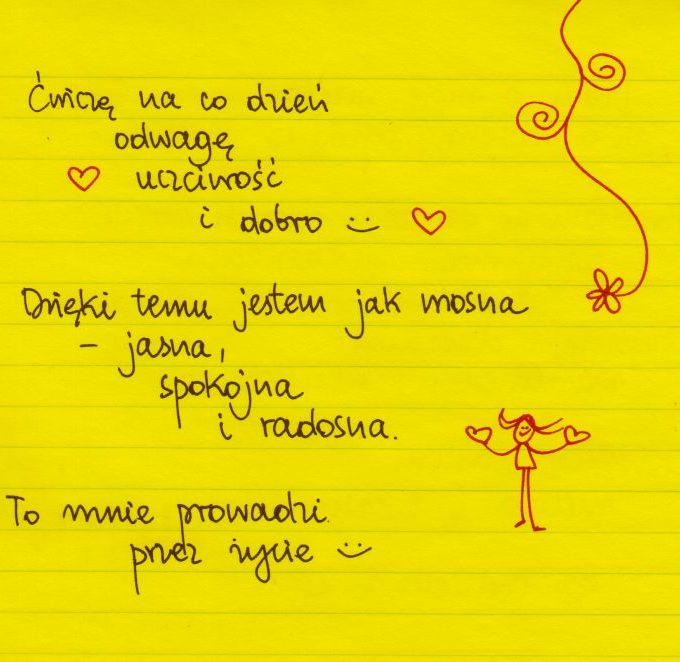 Ćwiczę na co dzień
odwagę
uczciwość
i dobro :)
Dzięki temu jestem jak wosna
- jasna,
spokojna
i radosna.
To mnie prowadzi
przez życie :)